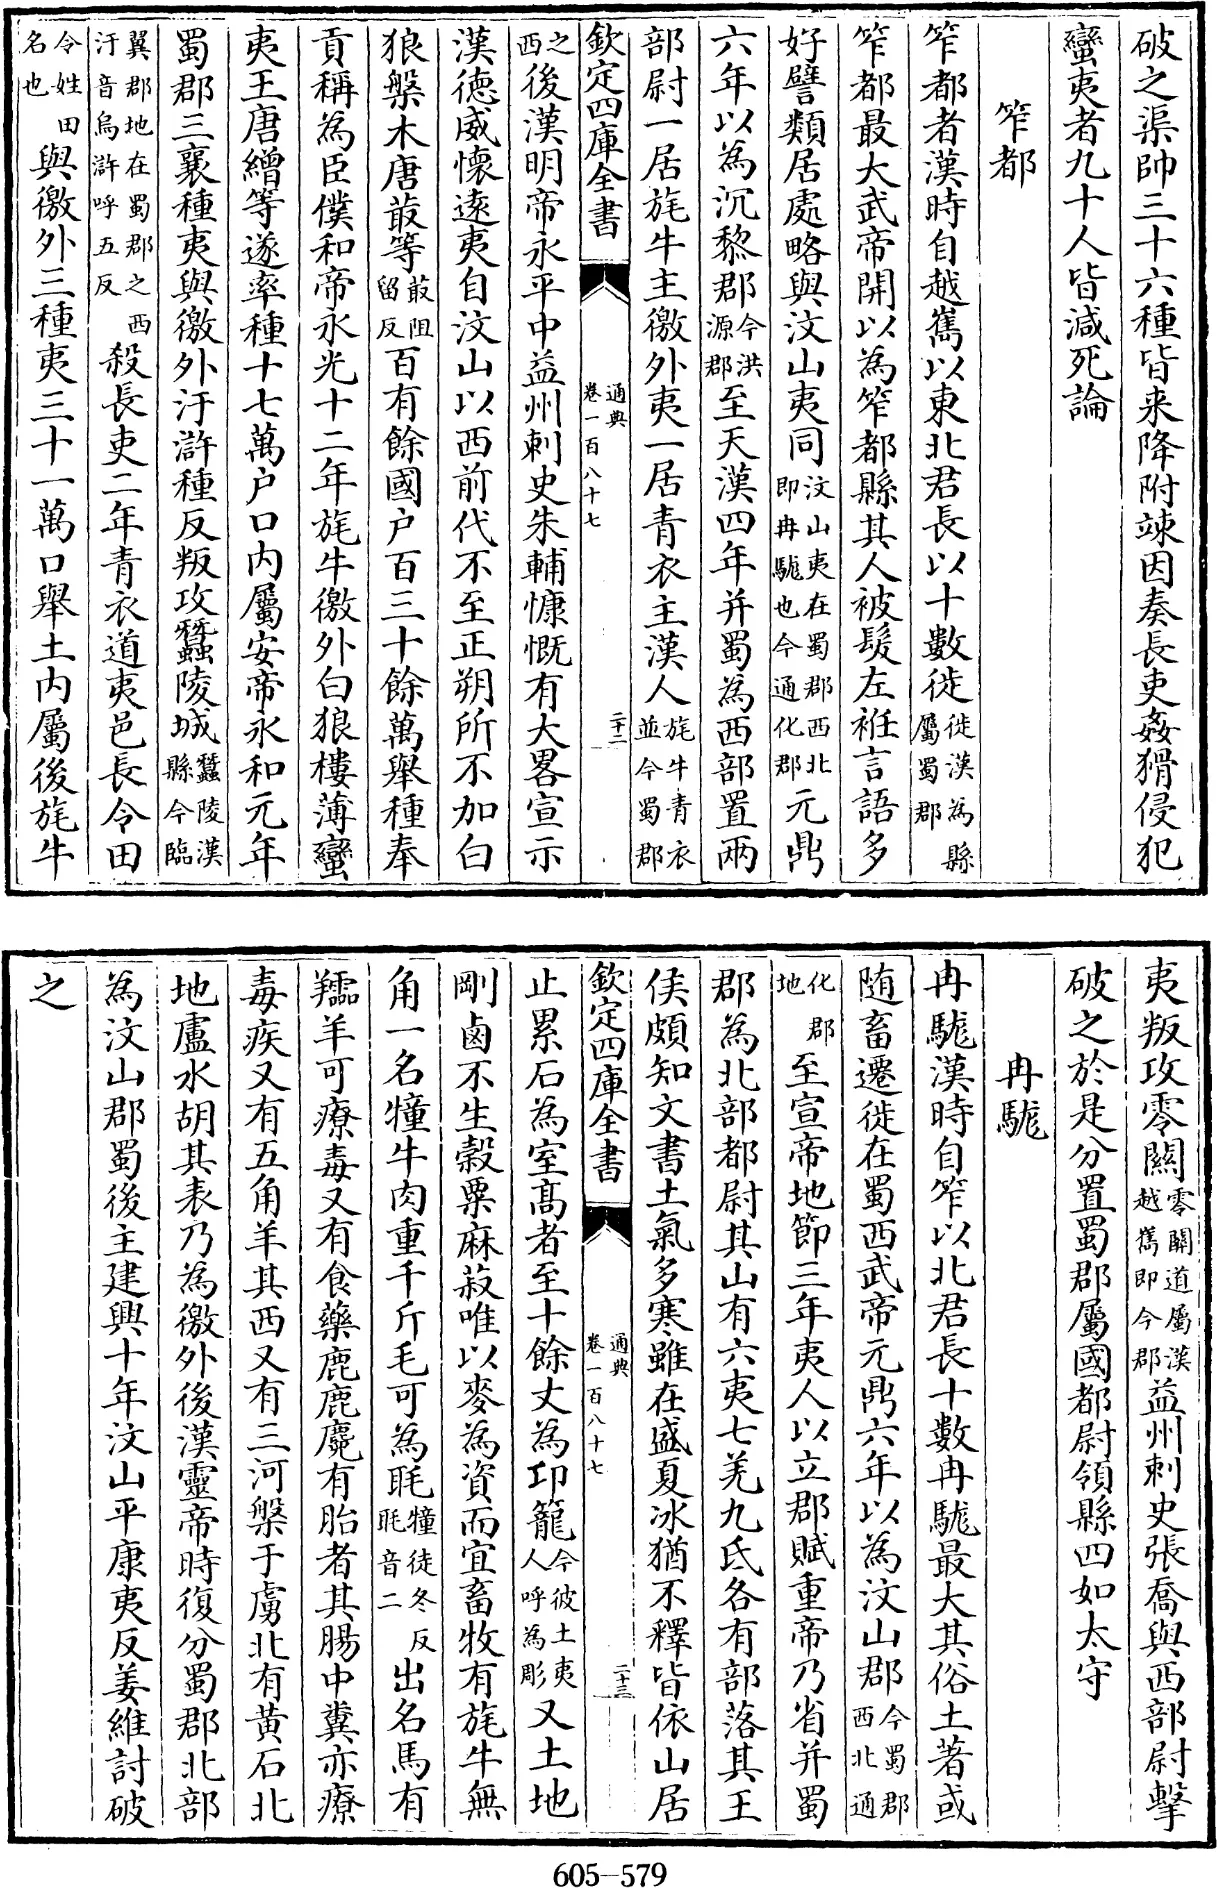 破之渠帥三十六種皆来降附竦因奏長吏姦猾侵犯
蠻夷者九十人皆減死論
笮都
笮都者漢時自越雟以東北君長以十數徙徙漢為縣屬蜀郡
笮都最大武帝開以為笮都縣其人被髮左袵言語多
好譬類居處略與汶山夷同汶山夷在蜀郡西北即冉駹也今通化郡元鼎
六年以為沉黎郡今洪源郡至天漢四年并蜀為西部置兩
部尉一居旄牛主徼外夷一居青衣主漢人旄牛青衣並今蜀郡
欽定四庫全書
通典
卷一百八十七
二十二
之西後漢明帝永平中益州刺史朱輔慷慨有大畧宣示
漢德威懷逺夷自汶山以西前代不至正朔所不加白
狼槃木唐菆等菆阻留反百有餘國户百三十餘萬舉種奉
貢稱為臣僕和帝永光十二年旄牛徼外白狼樓薄蠻
夷王唐繒等遂率種十七萬户口内屬安帝永和元年
蜀郡三襄種夷與徼外汙滸種反叛攻蠶陵城蠶陵漢縣今臨
翼郡地在蜀郡之西汙音烏滸呼五反殺長吏二年青衣道夷邑長令田
令姓田名也與徼外三種夷三十一萬口舉土内屬後旄牛
夷叛攻零關零關道屬漢越雟即今郡益州刺史張喬與西部尉擊
破之於是分置蜀郡屬國都尉領縣四如太守
冉駹
冉駹漢時自笮以北君長十數冉駹最大其俗土著或
随畜遷徙在蜀西武帝元鼎六年以為汶山郡今蜀郡西北通
化郡地至宣帝地節三年夷人以立郡賦重帝乃省并蜀
郡為北部都尉其山有六夷七羌九氐各有部落其王
侯頗知文書土氣多寒雖在盛夏冰猶不釋皆依山居
欽定四庫全書
通典
卷一百八十七
二十三
止累石為室髙者至十餘丈為邛籠今彼土夷人呼為彫又土地
剛鹵不生榖粟麻菽唯以麥為資而宜畜牧有旄牛無
角一名犝牛肉重千斤毛可為毦犝徒冬反毦音二出名馬有
羺羊可療毒又有食藥鹿鹿麑有胎者其腸中糞亦療
毒疾又有五角羊其西又有三河槃于虜北有黄石北
地盧水胡其表乃為徼外後漢靈帝時復分蜀郡北部
為汶山郡蜀後主建興十年汶山平康夷反姜維討破
之
605-579